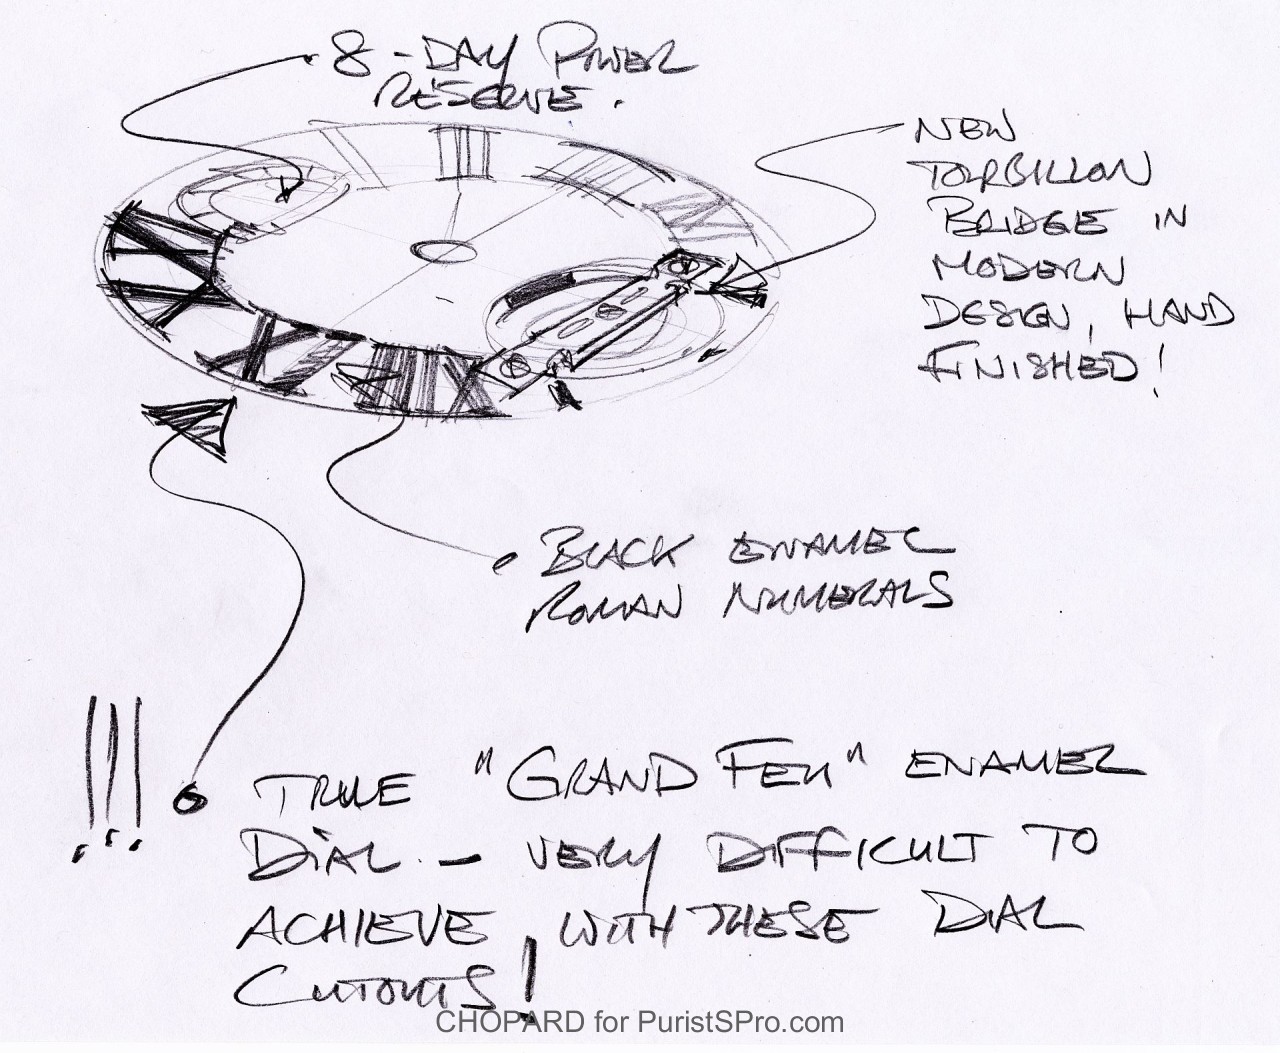 8-DAY POWER
RESERVE.
NEW
TORBILLON
BRIDGE IN
MODERN
DESIGN, HAND
FINISHED!
XII
BLACK ENAMEL
ROMAN NUMERALS
!!! TRUE "GRAND FEU" ENAMEL
DIAL - VERY DIFFICULT TO
ACHIEVE, WITH THESE DIAL
CUTOUTS!
CHOPARD for PuristSPro.com